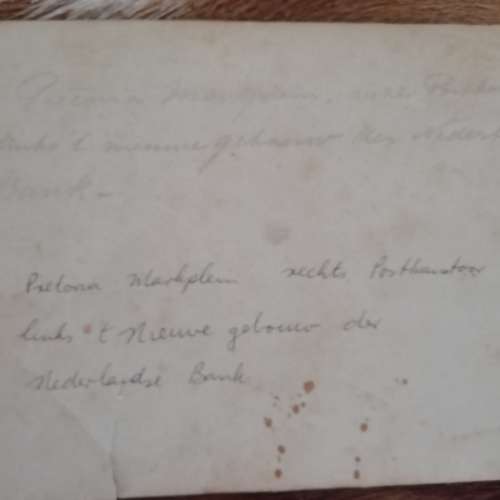 Pretoria Markplein, rechts Postk
links 't nieuwe gebouw der Neder
Bank.
Pretoria Markplein rechts Postkantoor
links 't Nieuwe gebouw der
Nederlandse Bank